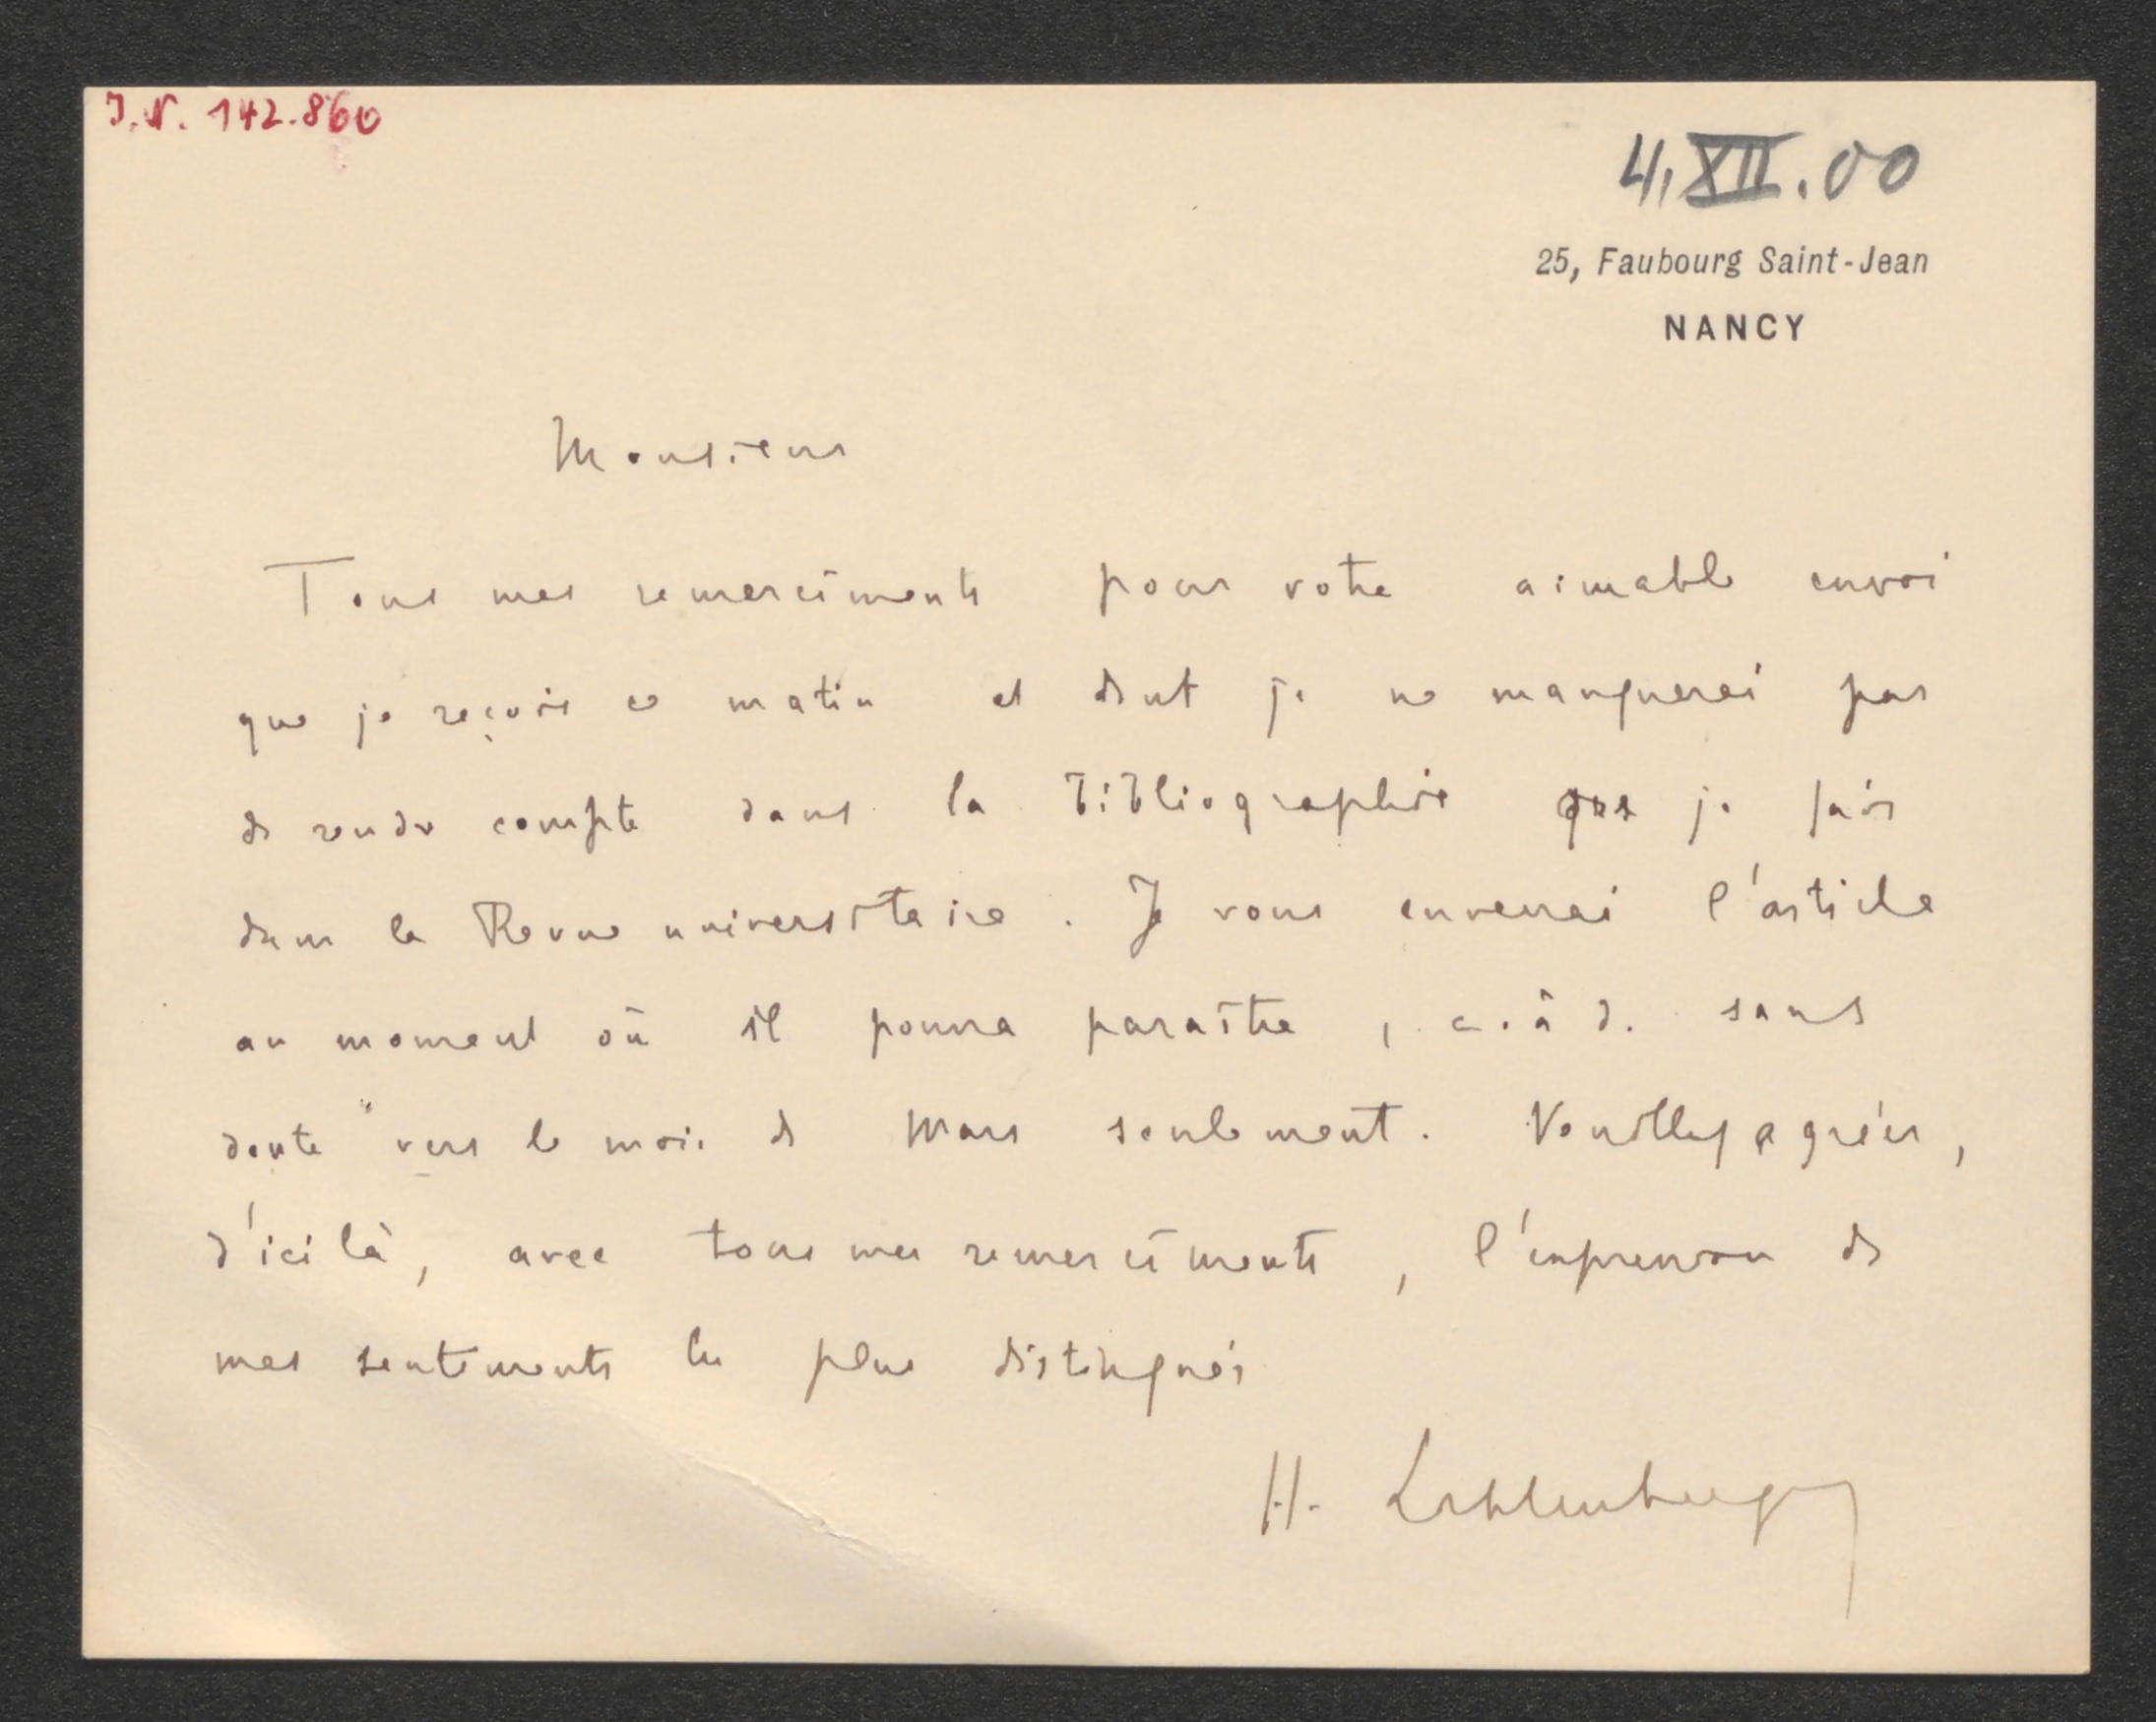 J.N. 142.860
4.XII.00
25, Faubourg Saint-Jean
NANCY
Monsieur
Tous mes remercîments pour votre aimable envoi
que je reçois ce matin et dont je ne manquerai pas
de rendre compte dans la bibliographie que je fais
dans la Revue universitaire. Je vous enverrai l'article
au moment où il pourra paraître, c.à d. sans
doute vers le mois de Mars seulement. Veuillez agréer,
d'ici là, avec tous mes remercîments, l'expression de
mes sentiments les plus distingués
H. Lichtenberger